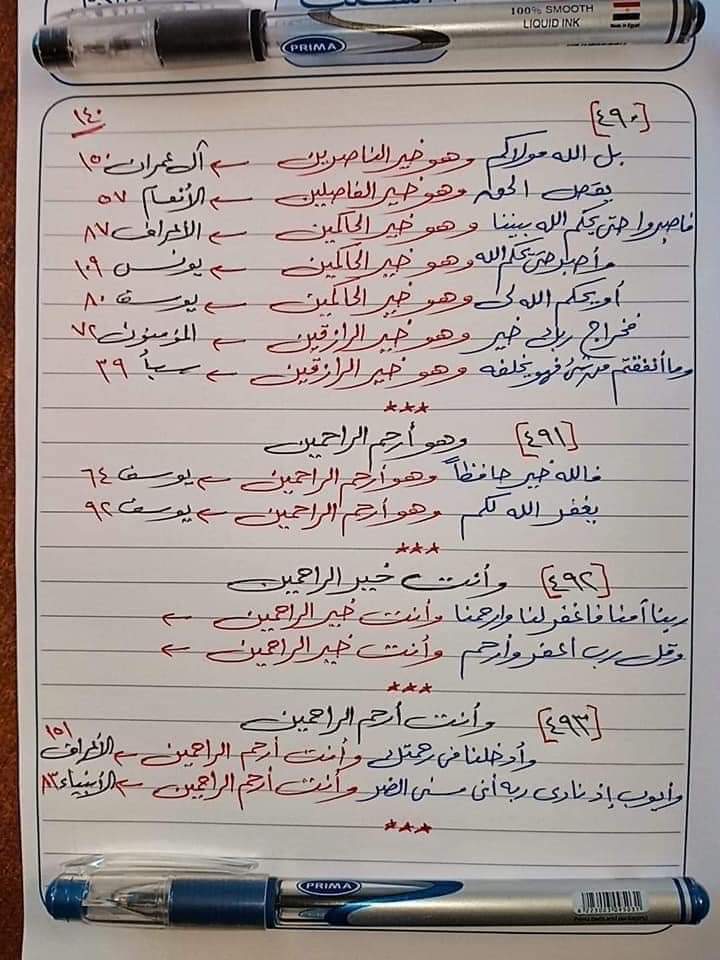 100% SMOOTH
LIQUID INK
Made in Egypt
PRIMA
[٤٩٠] ١٤٠
بل الله مولاكم وهو خير الناصرين ← آل عمران ١٥٠
يقص الحق وهو خير الفاصلين ← الأنعام ٥٧
فاصبروا حتى يحكم الله بيننا وهو خير الحاكمين ← الأعراف ٨٧
واصبر حتى يحكم الله وهو خير الحاكمين ← يونس ١٠٩
أو يحكم الله لى وهو خير الحاكمين ← يوسف ٨٠
فخراج ربك خير وهو خير الرازقين ← المؤمنون ٧٢
وما أنفقتم من شئ فهو يخلفه وهو خير الرازقين ← سبأ ٣٩
***
[٤٩١] وهو أرحم الراحمين
فالله خير حافظاً وهو أرحم الراحمين ← يوسف ٦٤
يغفر الله لكم وهو أرحم الراحمين ← يوسف ٩٢
***
[٤٩٢] وأنت خير الراحمين
ربنا أمنا فاغفر لنا وارحمنا وأنت خير الراحمين ←
وقل رب اغفر وأرحم وأنت خير الراحمين ←
***
[٤٩٣] وأنت أرحم الراحمين
وأدخلنا فى رحمتك وأنت أرحم الراحمين ← الأعراف ١٥١
وأيوب إذ نادى ربه أنى مسنى الضر وأنت أرحم الراحمين ← الأنبياء ٨٣
***
PRIMA